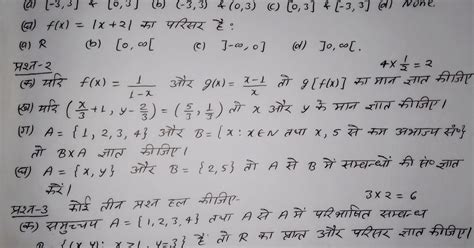 (a) [-3, 3] & [0, 3] (b) (-3, 3) & (0, 3) (c) [0, 3] & [-3, 3] (d) None.
(व) f(x) = |x+2| का परिसर है:
(a) R (b) [0, ∞[ (c) ]-∞, 0] (d) ]0, ∞[.
प्रश्न-2 4 × 1/2 = 2
(क) यदि f(x) = 1/(1-x) और g(x) = (x-1)/x तो g[f(x)] का मान ज्ञात कीजिए
(ख) यदि (x/3 + 1, y - 2/3) = (5/3, 1/3) तो x और y के मान ज्ञात कीजिए।
(ग) A = {1, 2, 3, 4} और B = {x : x ∈ N तथा x, 5 से कम अभाज्य सं०}
तो B×A ज्ञात कीजिए।
(घ) A = {x, y} और B = {2, 5} तो A से B में सम्बन्धों की सं० ज्ञात
करें।
प्रश्न-3 कोई तीन प्रश्न हल कीजिए- 3 × 2 = 6
(क) समुच्चय A = {1, 2, 3, 4} तथा A से A में परिभाषित सम्बन्ध
हैं तो R का प्रान्त और परिसर ज्ञात कीजिए।